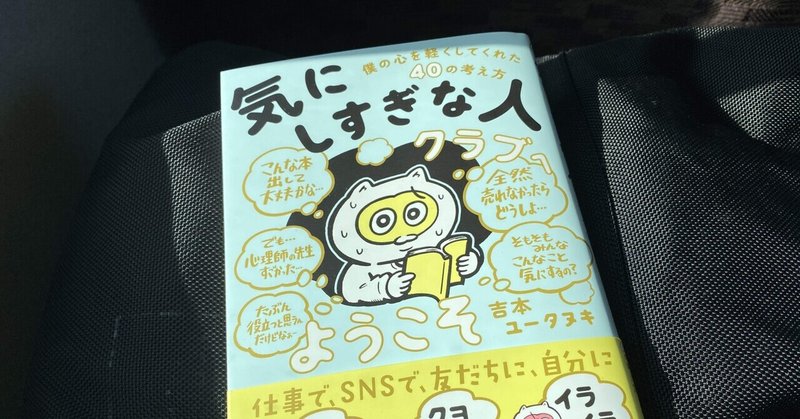 僕の心を軽くしてくれた
40の考え方
気に
しすぎな人
クラブへ
こんな本
出して
大丈夫かな…
全然
売れなかったら
どうしよ…
でも…
心理師の先生
すごかった…
そもそも
みんな
こんなこと
気にするの?
たぶん
役立つと思うん
だけどなぁ…
ようこそ
吉本
ユータヌキ
仕事で、SNSで、友だちに、自分に
クヨ
イラ